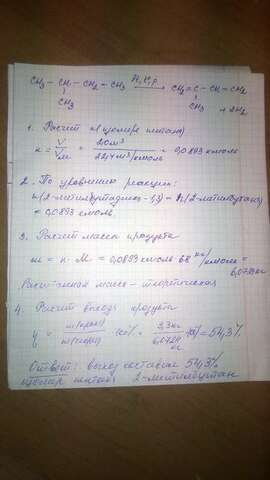 CH₃ – CH – CH₂ – CH₃ → CH₂=C – CH=CH₂
CH₃ CH₃ + 2H₂
1. Расчет n(изомера пентана)
n = V/Vм = 2,0м³/22,4м³/кмоль = 0,0893 кмоль
2. По уравнению реакции:
n(2-метилбутадиен-1,3) = n(2-метилбутана)
= 0,0893 кмоль.
3. Расчет массы продукта
m = n · M = 0,0893 кмоль · 68 кг/кмоль =
6,0724кг
Рассчитанная масса – теоретическая
4. Расчет выхода продукта
η = m(практ)/m(теорет) · 100% = 3,3кг/6,0724кг · 100% = 54,3%
Ответ: выход составил 54,3%
изомер пентана 2-метилбутан